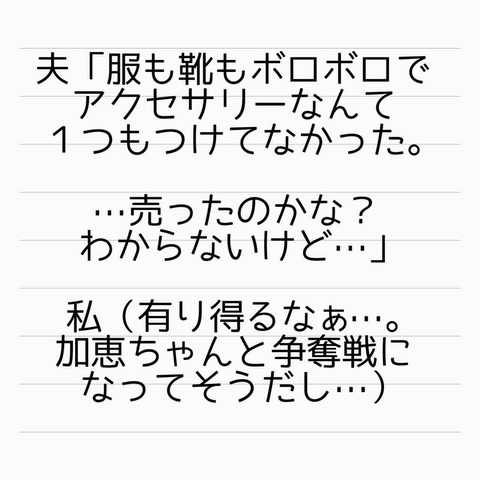 夫「服も靴もボロボロで
アクセサリーなんて
１つもつけてなかった。
…売ったのかな？
わからないけど…」
私（有り得るなぁ…。
加恵ちゃんと争奪戦に
なってそうだし…）